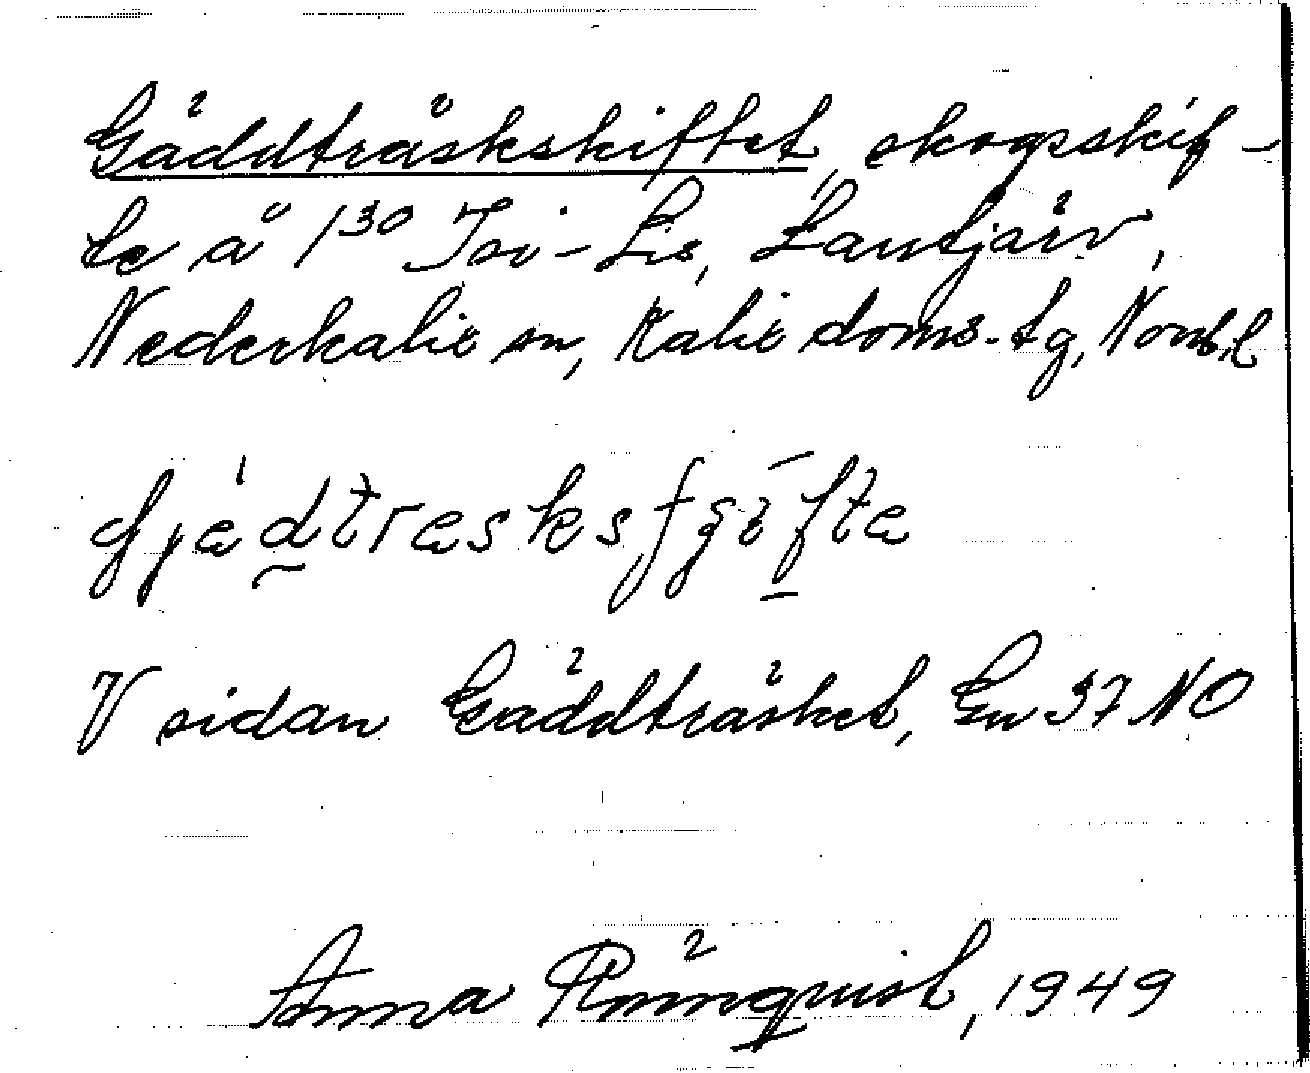 Gäddträskskiftet, skogsskif-
te å 1³⁰ Isi-Lis, Lantjärv,
Nederkalix sn, Kalix doms. tg, Norrb. l
V sidan Gäddträsket, Gn 37 NO
Anna Rönnqvist, 1949